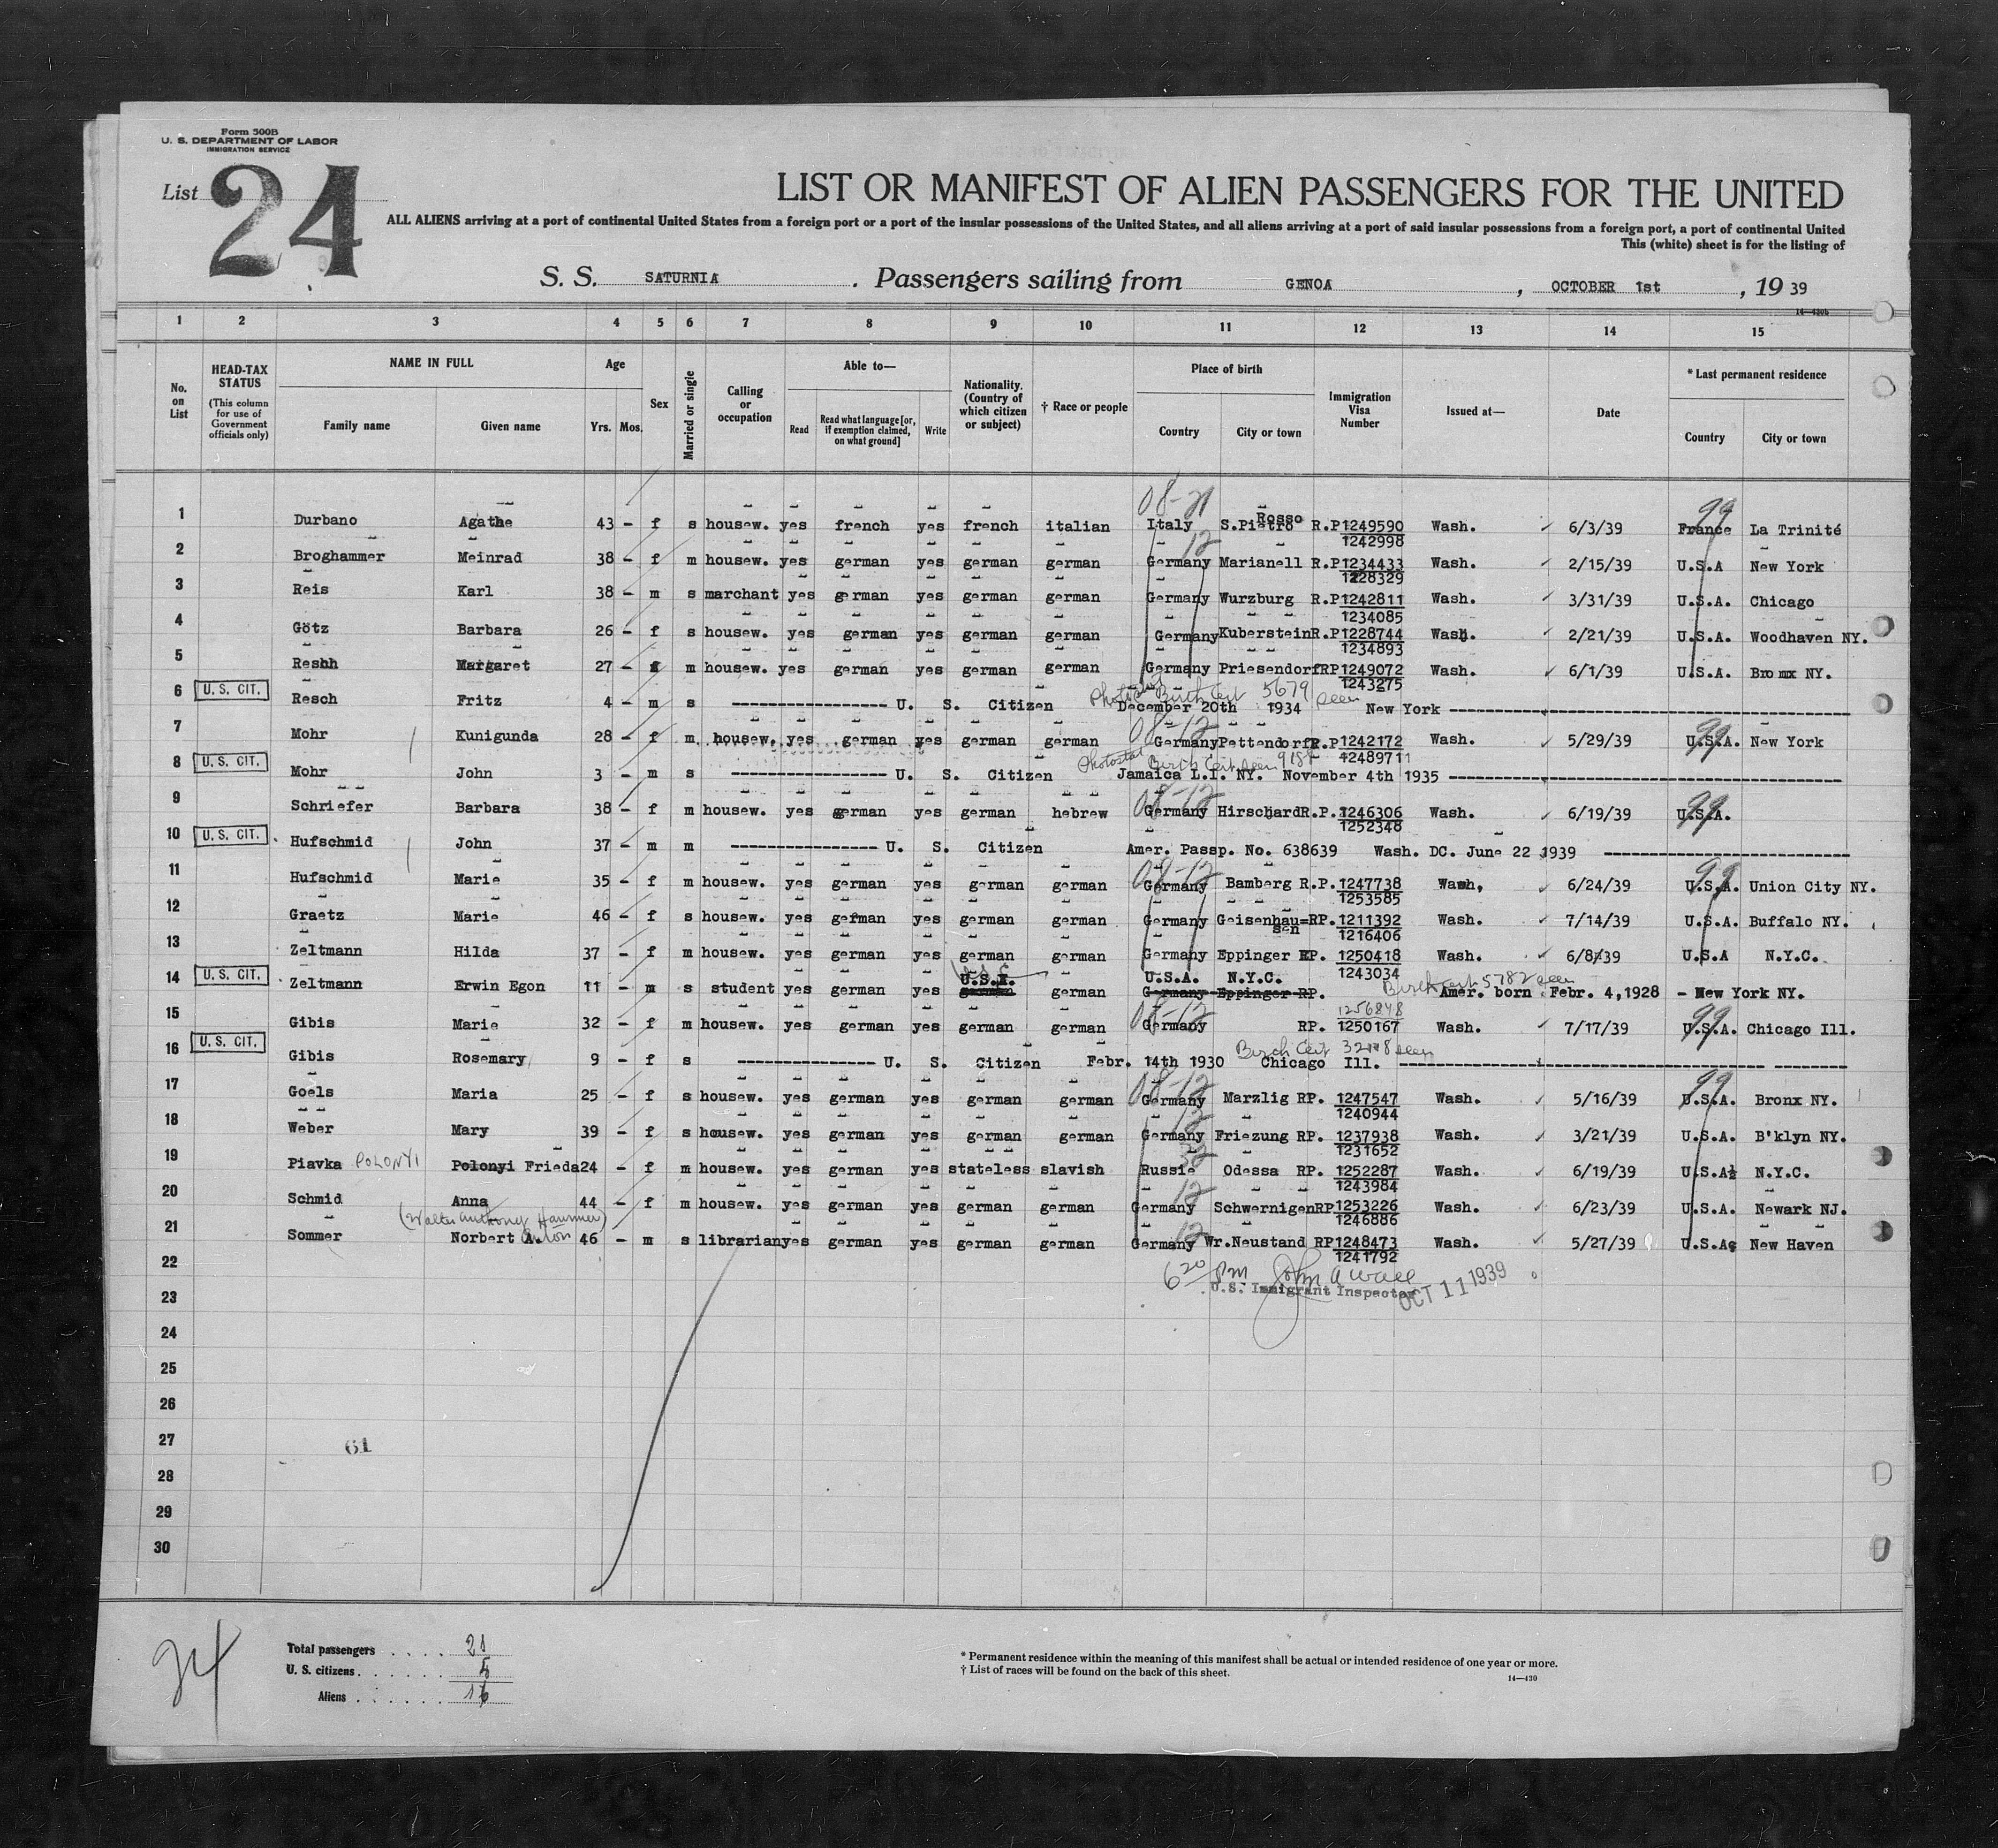 Form 500B
U. S. DEPARTMENT OF LABOR
IMMIGRATION SERVICE
List 24
LIST OR MANIFEST OF ALIEN PASSENGERS FOR THE UNITED
ALL ALIENS arriving at a port of continental United States from a foreign port or a port of the insular possessions of the United States, and all aliens arriving at a port of said insular possessions from a foreign port, a port of continental United
This (white) sheet is for the listing of
S. S. SATURNIA . Passengers sailing from GENOA , OCTOBER 1st , 19 39
14—430b
1 2 3 4 5 6 7 8 9 10 11 12 13 14 15
No. on List
HEAD-TAX STATUS (This column for use of Government officials only)
NAME IN FULL
Family name Given name
Age
Yrs. Mos.
Sex
Married or single
Calling or occupation
Able to—
Read
Read what language [or, if exemption claimed, on what ground]
Write
Nationality. (Country of which citizen or subject)
† Race or people
Place of birth
Country City or town
Immigration Visa Number
Issued at—
Date
* Last permanent residence
Country City or town
08-21 99
1 Durbano Agathe 43 - f s housew. yes french yes french italian Italy S.Pietro Rosso R.P1249590 Wash. 6/3/39 France La Trinité
1242998
12
2 Broghammer Meinrad 38 - f m housew. yes german yes german german Germany Marianell R.P1234433 Wash. 2/15/39 U.S.A New York
1228329
3 Reis Karl 38 - m s marchant yes german yes german german Germany Wurzburg R.P1242811 Wash. 3/31/39 U.S.A. Chicago
1234085
4 Götz Barbara 26 - f s housew. yes german yes german german Germany Kuberstein R.P1228744 Wash. 2/21/39 U.S.A. Woodhaven NY.
1234893
5 Resch Margaret 27 - f m housew. yes german yes german german Germany Priesendorf RP1249072 Wash. 6/1/39 U.S.A. Bronx NY.
1243275
Photostat Birth Cert 5679 seen
6 U. S. CIT. Resch Fritz 4 - m s ---------------- U. S. Citizen December 20th 1934 New York ----------------
08-12 99
7 Mohr Kunigunda 28 - f m housew. yes german yes german german Germany Pettendorf R.P1242172 Wash. 5/29/39 U.S.A. New York
42489711
Photostat Birth Cert seen 9187
8 U. S. CIT. Mohr John 3 - m s ---------------- U. S. Citizen Jamaica L.I. NY. November 4th 1935 ----------------
08-12 99
9 Schriefer Barbara 38 - f m housew. yes german yes german hebrew Germany Hirschard R.P.1246306 Wash. 6/19/39 U.S.A.
1252348
10 U. S. CIT. Hufschmid John 37 - m m ---------------- U. S. Citizen Amer. Passp. No. 638639 Wash. DC. June 22 1939 ----------------
08-12 99
11 Hufschmid Marie 35 - f m housew. yes german yes german german Germany Bamberg R.P. 1247738 Wash, 6/24/39 U.S.A. Union City NY.
1253585
12 Graetz Marie 46 - f s housew. yes german yes german german Germany Geisenhau=sen RP.1211392 Wash. 7/14/39 U.S.A. Buffalo NY.
1216406
13 Zeltmann Hilda 37 - f m housew. yes german yes german german Germany Eppinger RP. 1250418 Wash. 6/8/39 U.S.A N.Y.C.
1243034
U.S.A. U.S.A. N.Y.C. Birth cert 5782 seen
14 U. S. CIT. Zeltmann Erwin Egon 11 - m s student yes german yes german german Germany Eppinger RP. Amer. born Febr. 4,1928 - New York NY.
08-12 1256848 99
15 Gibis Marie 32 - f m housew. yes german yes german german Germany RP. 1250167 Wash. 7/17/39 U.S.A. Chicago Ill.
Birth Cert seen
16 U. S. CIT. Gibis Rosemary 9 - f s --------------- U. S. Citizen Febr. 14th 1930 Chicago Ill. ----------------
08-12 99
17 Goels Maria 25 - f s housew. yes german yes german german Germany Marzlig RP. 1247547 Wash. 5/16/39 U.S.A. Bronx NY.
1240944
12
18 Weber Mary 39 - f s housew. yes german yes german german Germany Friezung RP. 1237938 Wash. 3/21/39 U.S.A. B'klyn NY.
1231652
19 Piavka POLONYI Polonyi Frieda 24 - f m housew. yes german yes stateless slavish Russia Odessa RP. 1252287 Wash. 6/19/39 U.S.A. N.Y.C.
1243984
12
20 Schmid Anna 44 - f m housew. yes german yes german german Germany Schwernigen RP1253226 Wash. 6/23/39 U.S.A. Newark NJ.
1246886
(Walter Anthony Hammer)
12
21 Sommer Norbert A. Anton 46 - m s librarian yes german yes german german Germany Wr.Neustand RP1248473 Wash. 5/27/39 U.S.A. New Haven
1241792
22
6 20 PM John A Wall
U.S. Immigrant Inspector OCT 11 1939
23
24
25
26
27 61
28
29
30
24
Total passengers . . . . 21
U. S. citizens . . . . . . 5
Aliens . . . . . . 16
* Permanent residence within the meaning of this manifest shall be actual or intended residence of one year or more.
† List of races will be found on the back of this sheet.
14—430